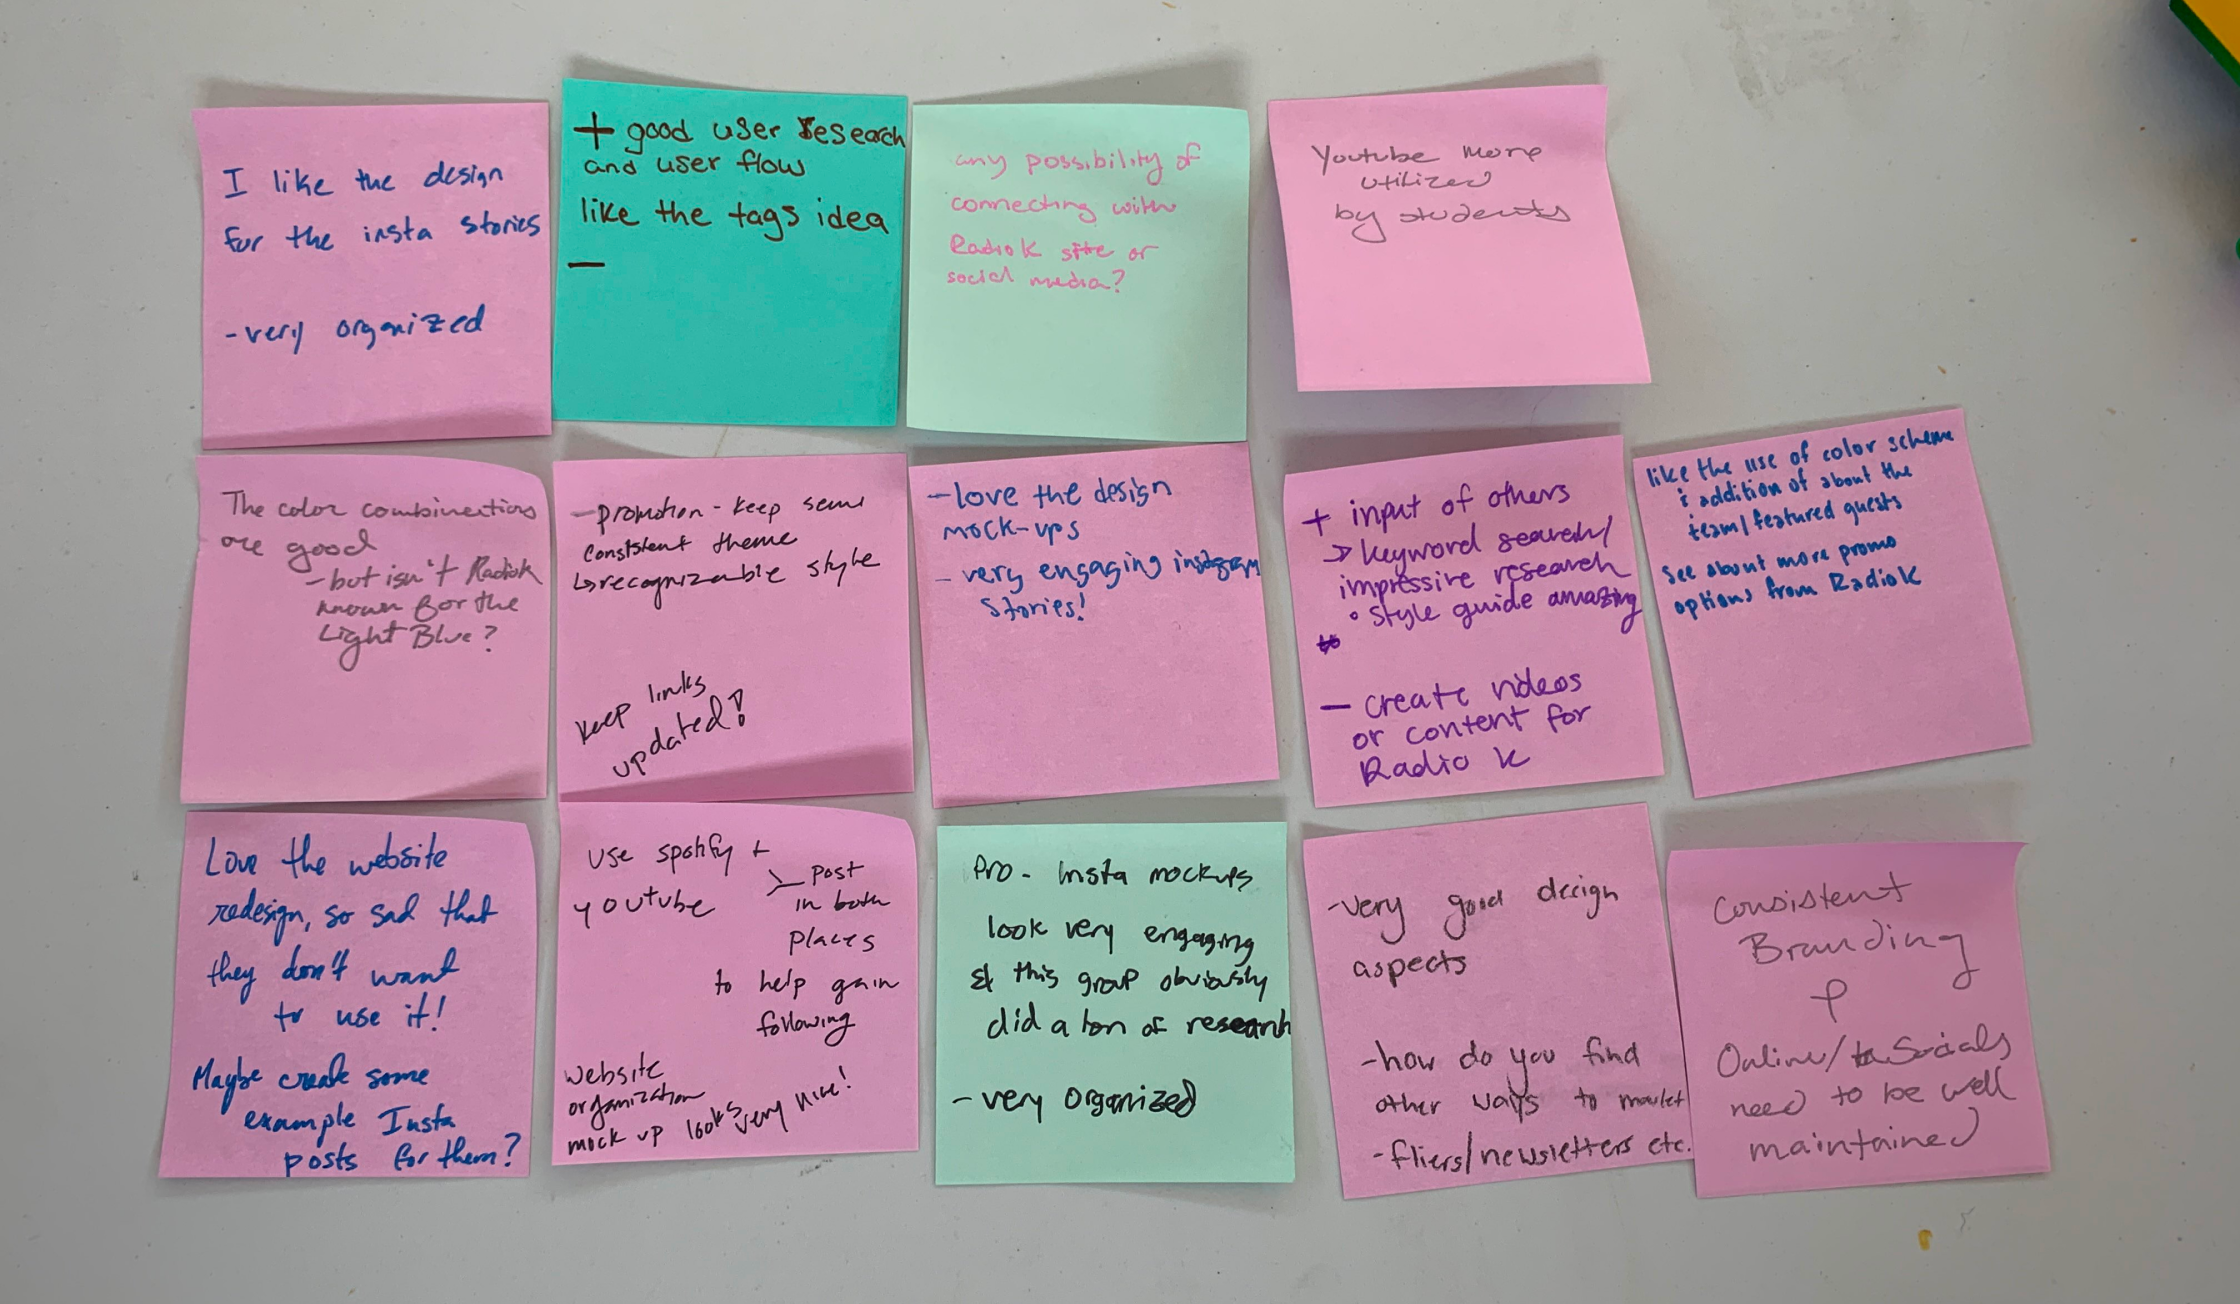 I like the design
for the insta stories
-very organized
+ good user research
and user flow
like the tags idea
—
any possibility of
connecting with
Radio K site or
social media?
Youtube more
utilized
by students
The color combinations
are good
-but isn't RadioK
known for the
Light Blue?
-promotion - keep semi
consistent theme
↳recognizable style
keep links
updated!
-love the design
mock-ups
- very engaging instagram
stories!
+ input of others
→ keyword search/
impressive research
• style guide amazing
— create videos
or content for
Radio K
like the use of color scheme
& addition of about the
team/featured guests
see about more promo
options from RadioK
Love the website
redesign, so sad that
they don't want
to use it!
Maybe create some
example Insta
posts for them?
use spotify +
youtube
post
in both
places
to help gain
following
website
organization
mock up looks very nice!
Pro - Insta mockups
look very engaging
& this group obviously
did a ton of research
- very organized
-very good design
aspects
-how do you find
other ways to market
-fliers/newsletters etc.
Consistent
Branding
Online/Socials
need to be well
maintained